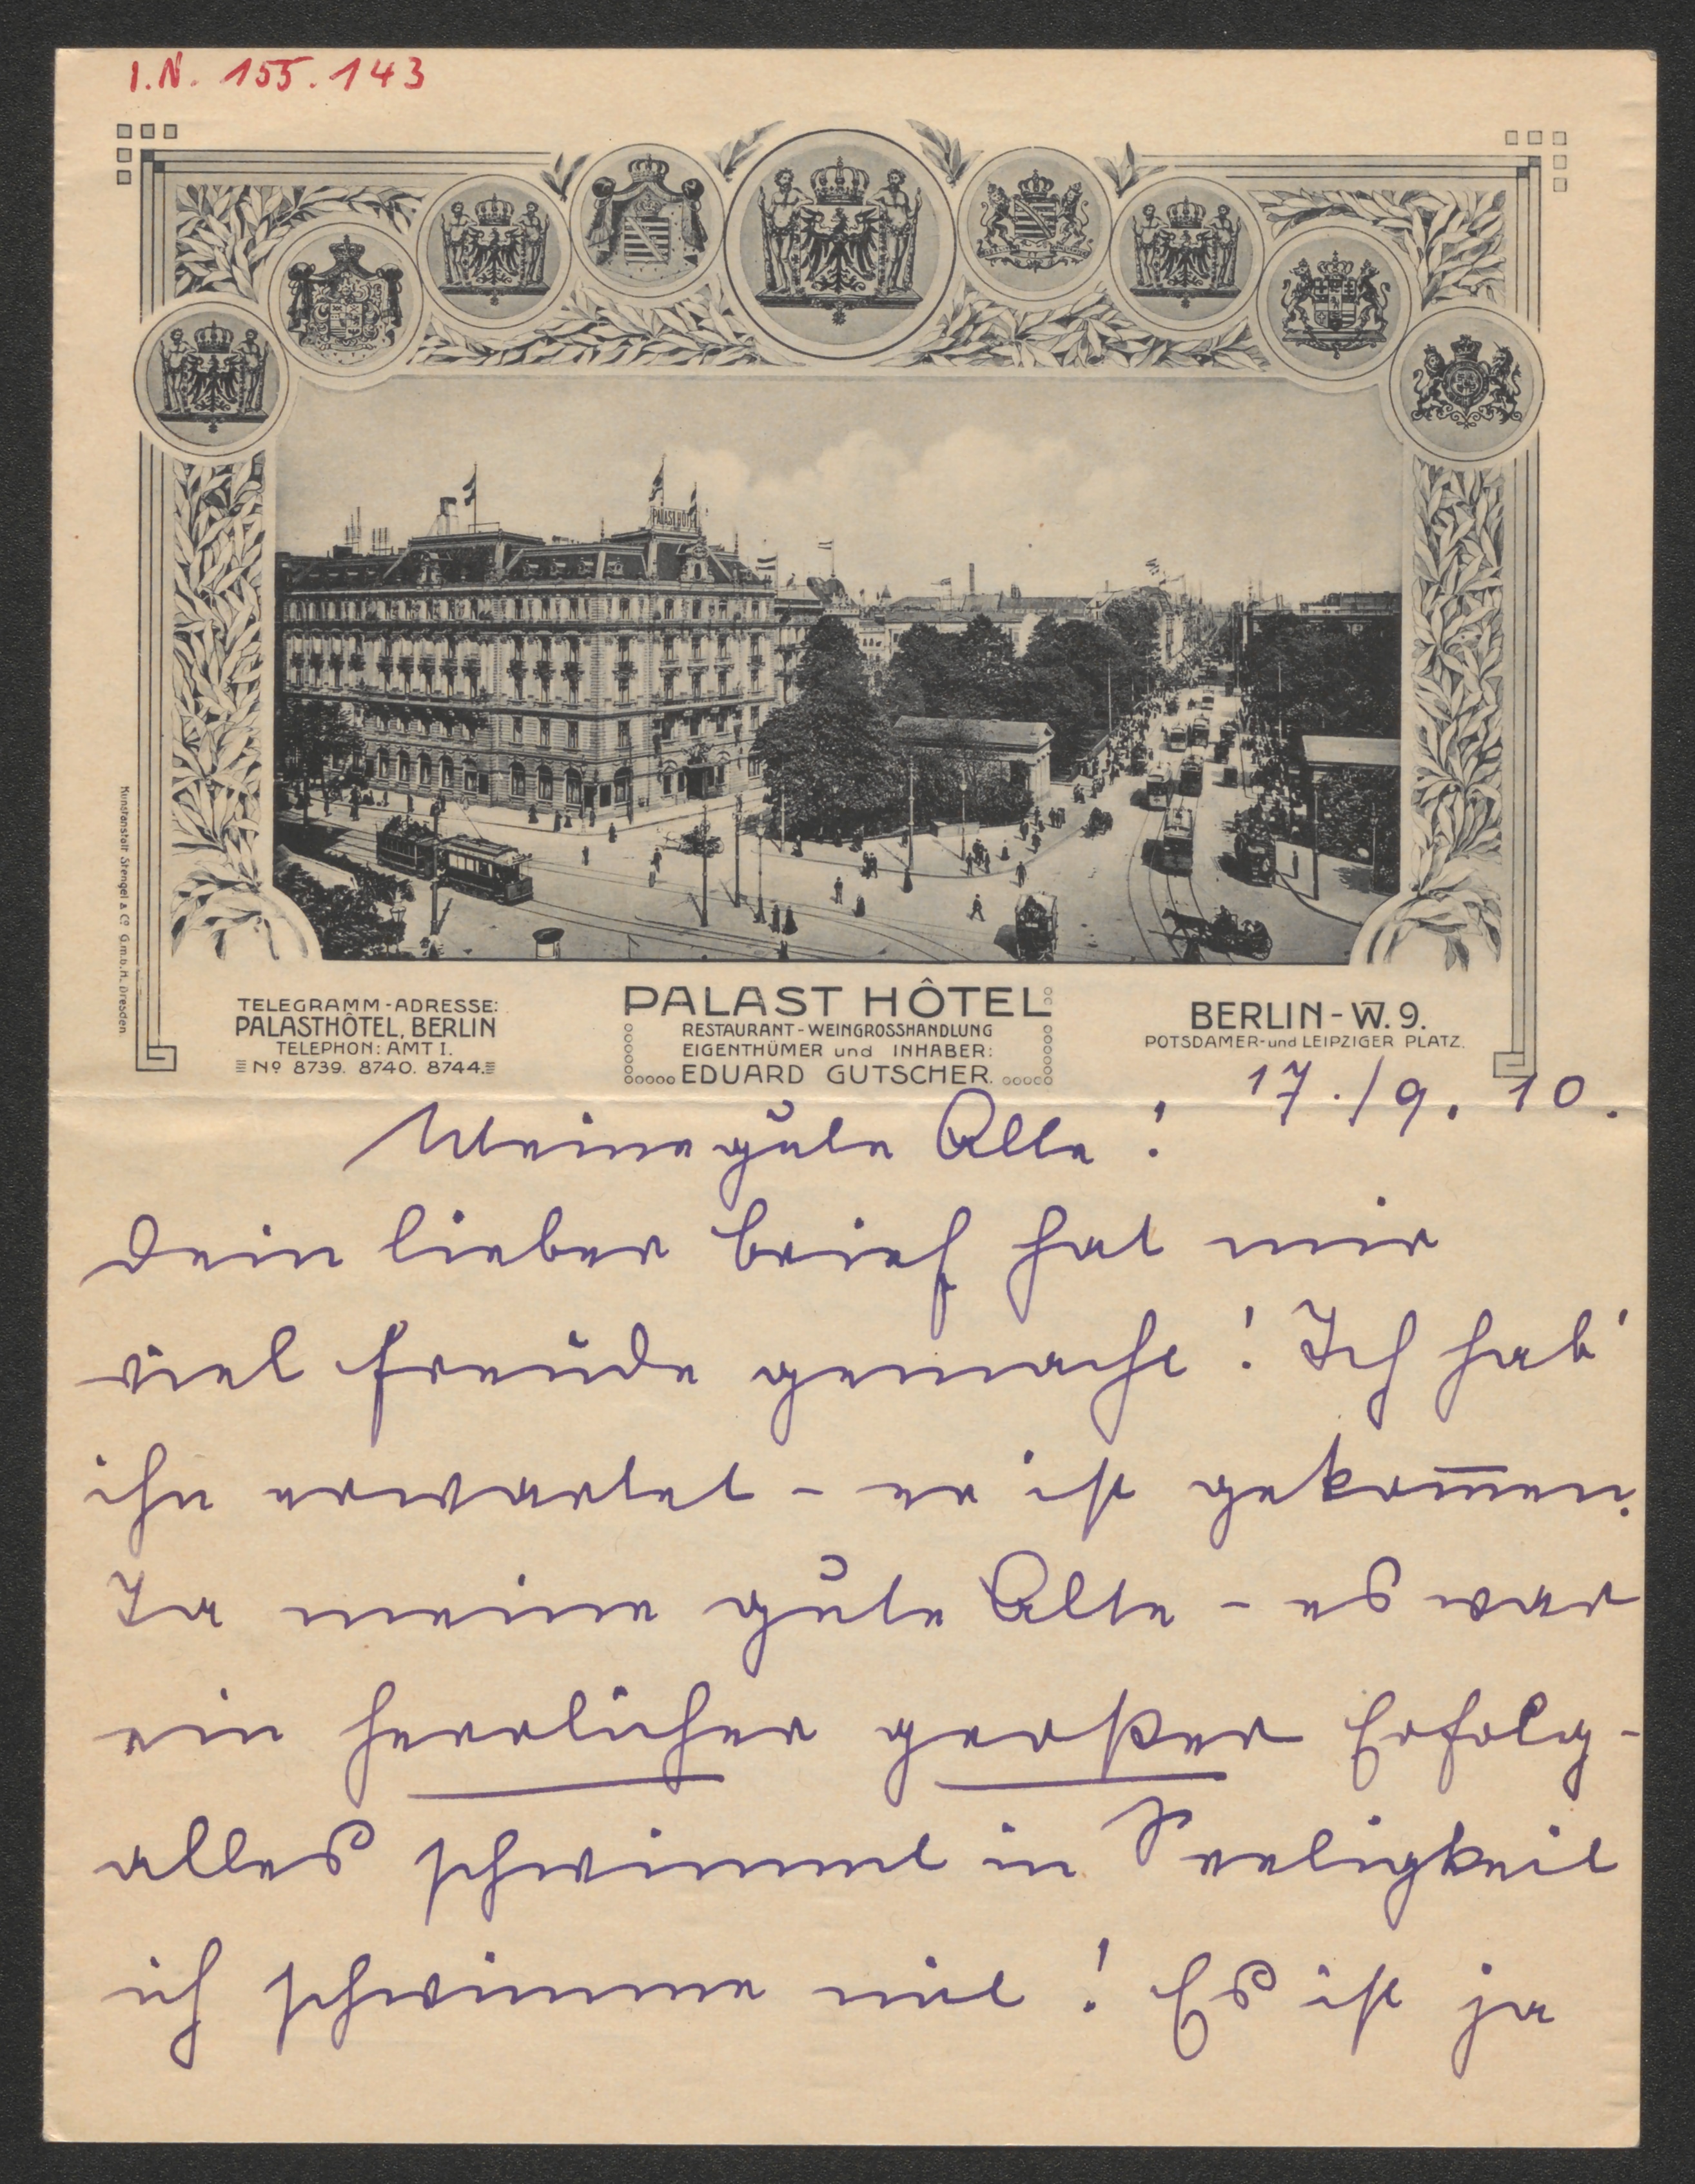 I.N. 155.143
PALAST HOTEL
Kunstanstalt Stengel & Co. G.m.b.H. Dresden.
TELEGRAMM-ADRESSE:
PALASTHÔTEL, BERLIN
TELEPHON: AMT I.
No 8739. 8740. 8744.
PALAST HÔTEL
RESTAURANT-WEINGROSSHANDLUNG
EIGENTHÜMER und INHABER:
EDUARD GUTSCHER.
BERLIN-W. 9.
POTSDAMER- und LEIPZIGER PLATZ.
17./9. 10.
Meine gute Alte!
Dein lieber Brief hat mir
viel Freude gemacht! Ich hab'
ihn erwartet - er ist gekom̅en.
Ja meine gute Alte - es war
ein herrlicher großer Erfolg -
alles schwimmt in Seeligkeit
ich schwimme mit! Es ist ja